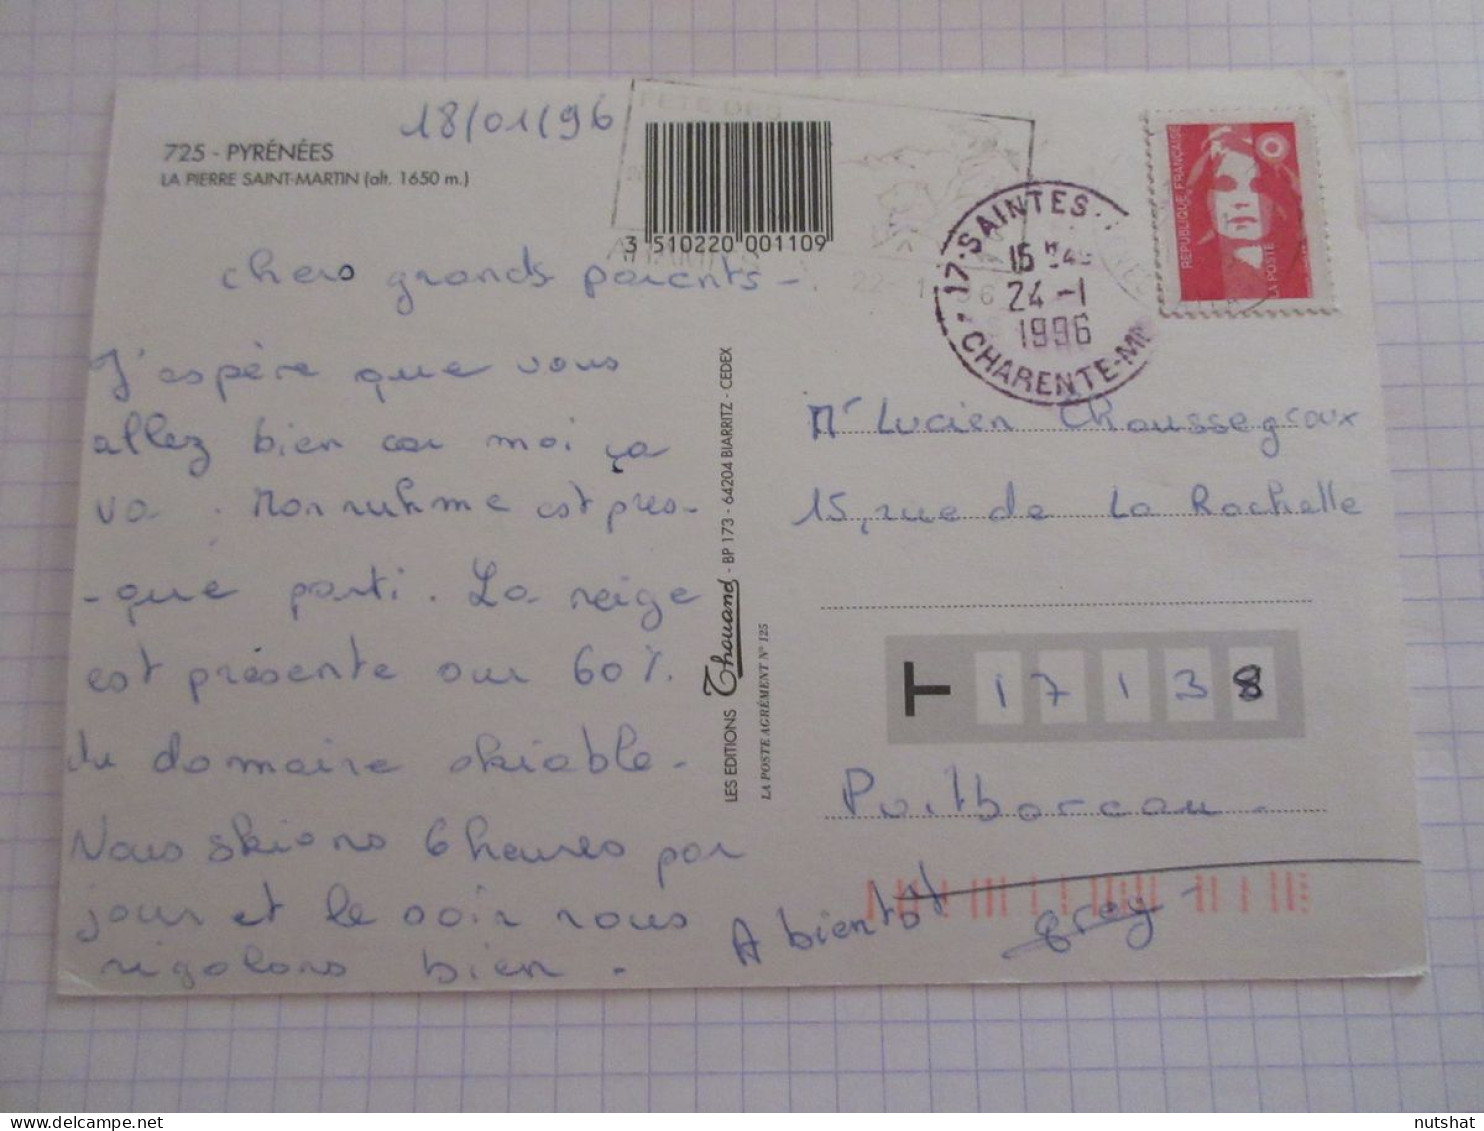 18/01/96
725 - PYRÉNÉES
LA PIERRE SAINT-MARTIN (alt. 1650 m.)
3 510220 001109
chers grands parents -.
J'espère que vous
allez bien car moi ça
va. Mon ruhme est pres-
-que parti. La neige
est présente sur 60%.
du domaine skiable.
Nous skions 6 heures par
jour et le soir nous
rigolons bien.
A bientôt
greg
LES EDITIONS Thouand - BP 173 - 64204 BIARRITZ - CEDEX
LA POSTE AGRÉMENT N° 125
17 - SAINTES
24 -1
1996
CHARENTE-M
RÉPUBLIQUE FRANÇAISE
LA POSTE
Mr Lucien Choussegroux
15, rue de La Rochelle
T 17138
Puilboreau.
nutshat